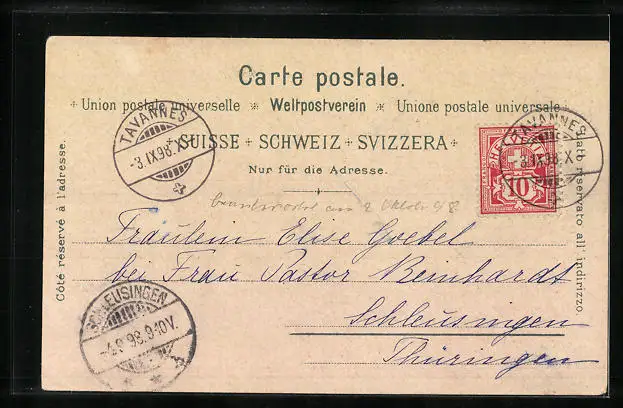 Carte postale.
Union postale universelle * Weltpostverein * Unione postale universale
+ SUISSE + SCHWEIZ + SVIZZERA +
Nur für die Adresse.
Côté réservé à l'adresse.
Lato riservato all'indirizzo.
TAVANNES
-3.IX98.X
HELVETIA
10
TAVANNES
3.IX98.X
beantwortet am 2 Oktob. 98
Fräulein Elise Goebel
bei Frau Pastor Reinhardt
Schleusingen
Thüringen
SCHLEUSINGEN
-4.9 98.9-10V.